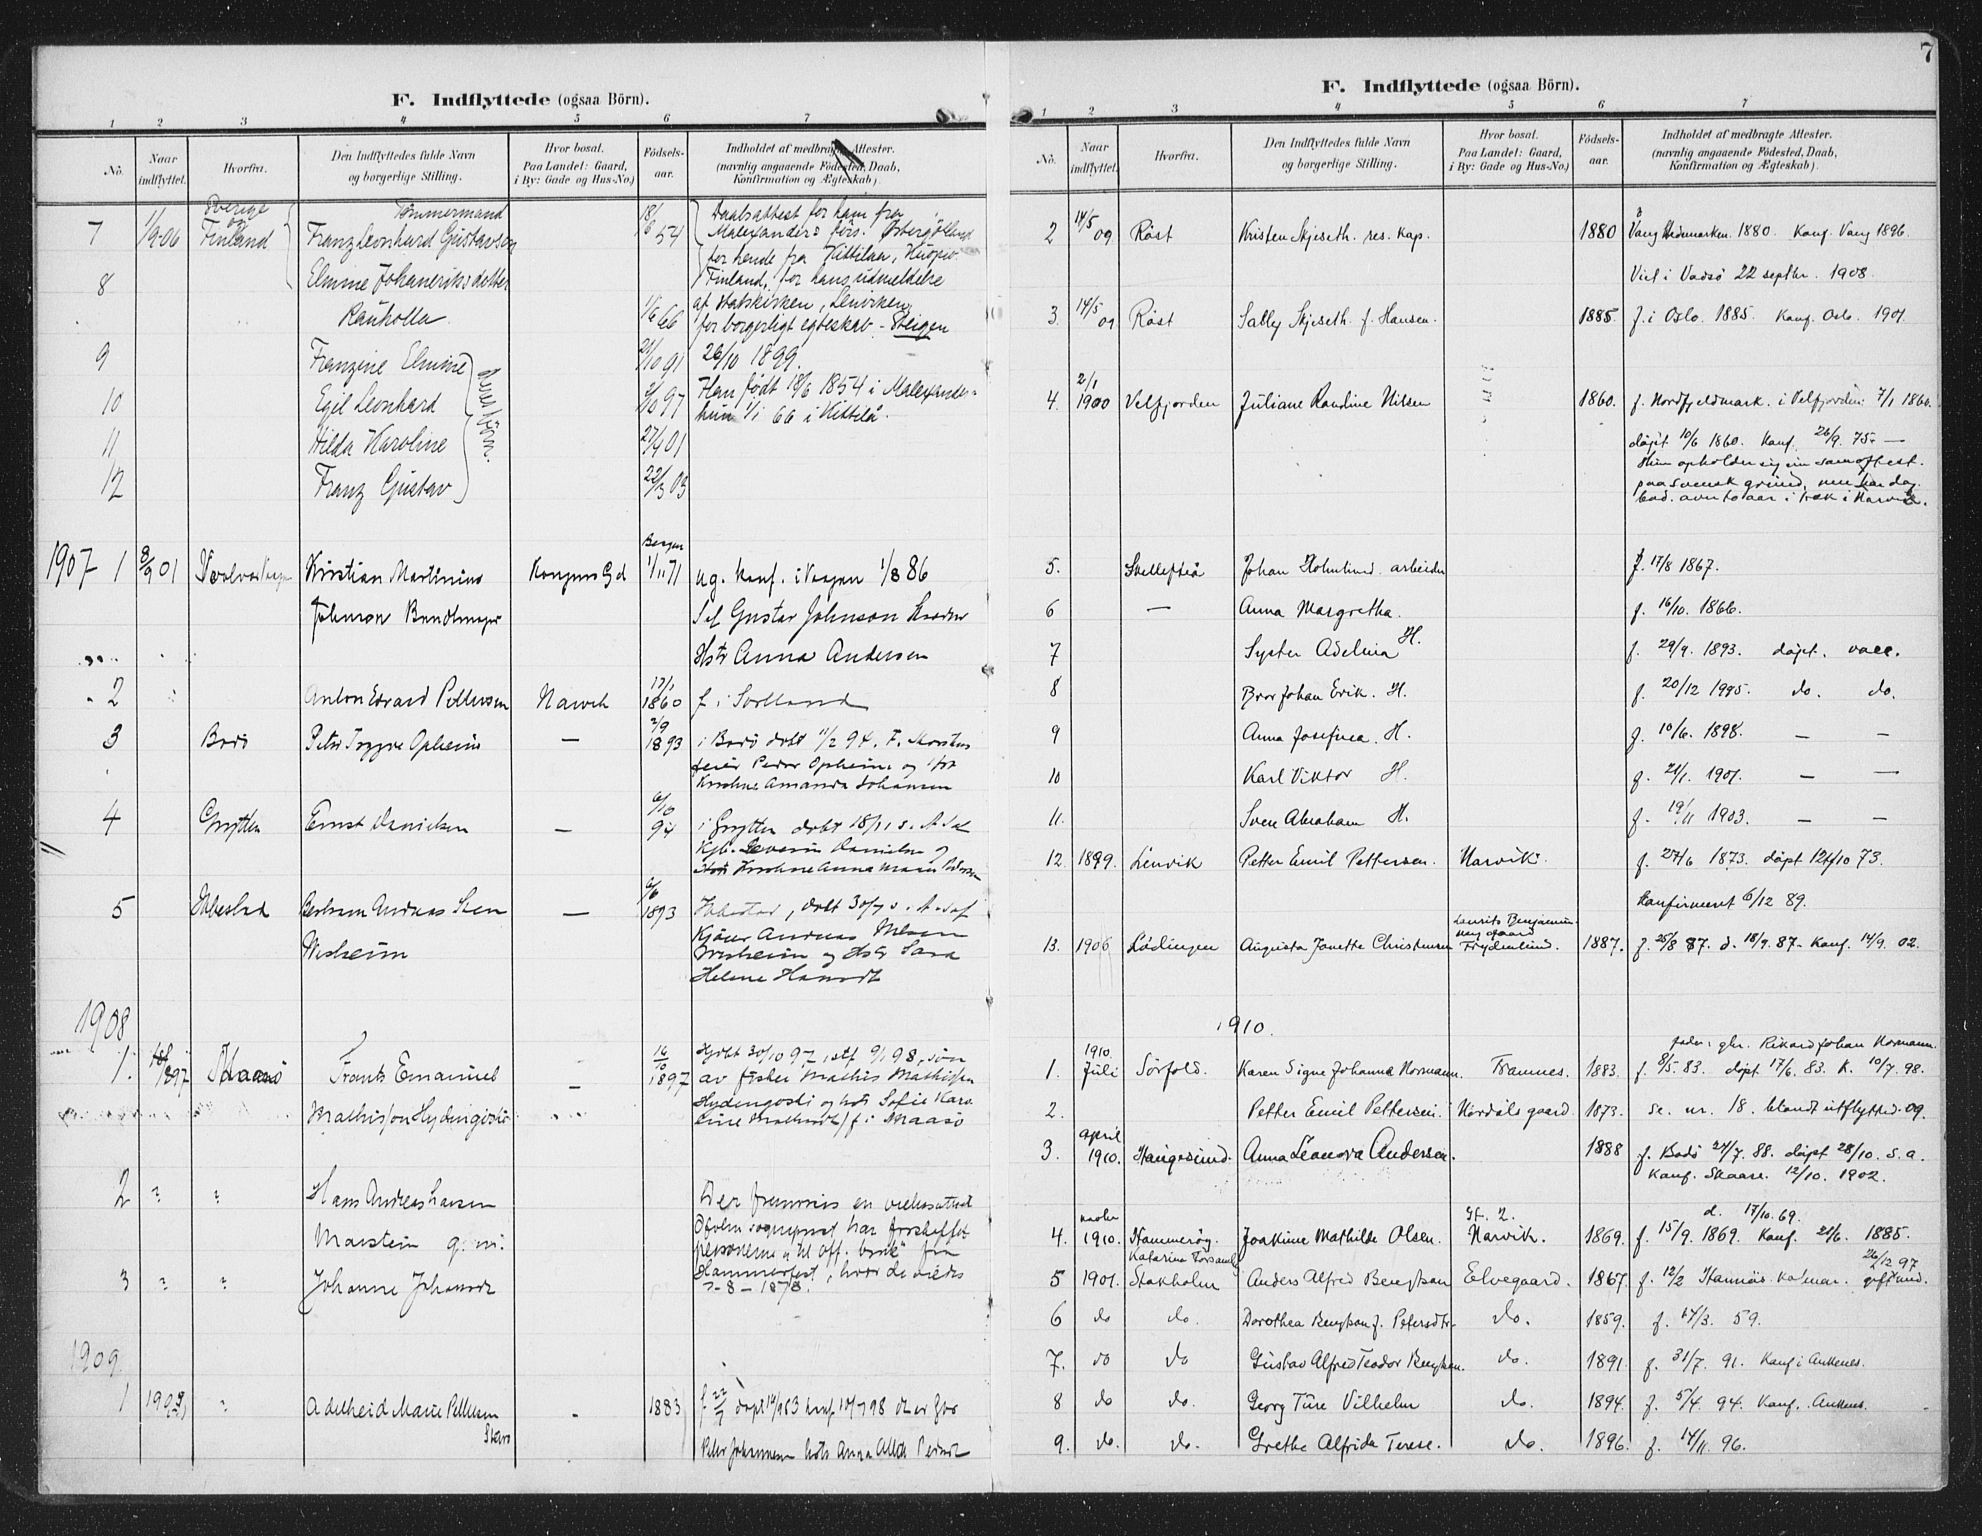 7
F. Indflyttede (ogsaa Börn).
1 2 3 4 5 6 7
No. Naar indflyttet. Hvorfra. Den Indflyttedes fulde Navn og borgerlige Stilling. Hvor bosat. Paa Landet: Gaard, i By: Gade og Hus-No.) Födsels-aar. Indholdet af medbragte Attester. (navnlig angaaende Födested, Daab, Konfirmation og Ægteskab).
Sverige Tømmermand 18/6 Daabsattest for ham fra
7 1/9-06 og Finland Franz Leonhard Gustavson 54 Malexanders førs. Østergötland
for hende fra Kittilaa, Kuopio
8 Elmine Johaneriksdotter Finland, for hans udmeldelse
af statskirken, Lenviken,
Rauholla 1/6 66 for borgerligt egteskab - Steigen
9 Franzine Elmine 21/10 91 26/10 1899.
10 Egil Leonhard 97 Han født 18/6 1854 i Malexander-
hun 1/1 66 i Kittilå.
11 Hilda Karoline deres börn. 27/4 01
12 Franz Gustav 22/3 03
Bergen
1907 1 8/9 01 Kristian Martinius Kongens Gd 1/11 71 ug. konf. i Vaagen 1/8 86
Johnson Sef Gustav Johnson
Hstr Anna Andersen
2 Anton Edvard Pettersen Narvik 17/1 1860 f. i Sortland
3 Bodö Peter Trygve Opheim — 2/9 1893 i Bodö døbt 11/2 94. F.
Peder Opheim og
Amanda Johansen
4 Grytten Ernst Danielsen — 6/10 94 i Grytten døbt 18/11 s. A
Severin Danielsen og
Anna
5 Ibbestad Andreas Sten — 6/6 1893 Ibbestad, døbt 30/7 s. A.
Wisheim Andreas Nilsen
Wisheim og Hstr Sara
Helene
1908
1. 1897 Maasö Frants Emanuel — 16/10 1897 Hjdbt 30/10 97, stf 9/1 98, søn
av fisker Mathis Mathisen
Mathisson Hydingosti Hydingosti og hstr Sofie Karo
line Mathisdt f. i Maasö
2 " " Hans Andreas Larsen Der fremvises en vielsesattest
Marstein g. m. personerne "til off. bruk" fra
3 " " Johanne Johansdt Hammerfest, hvor de viedes
7-8-1878.
1909.
1 " Adelheid Marie Pettersen - 1883 f 22/7 døpt konf 10/7 98
Peter Johannesen hstr Anna
F. Indflyttede (ogsaa Börn).
1 2 3 4 5 6 7
No. Naar indflyttet. Hvorfra. Den Indflyttedes fulde Navn og borgerlige Stilling. Hvor bosat. Paa Landet: Gaard, i By: Gade og Hus-No.) Födsels-aar. Indholdet af medbragte Attester. (navnlig angaaende Födested, Daab, Konfirmation og Ægteskab).
2 14/5 09 Röst Kristen Skjeseth. res. kap. 1880 Vang Hedmarken. 1880. Konf. Vang 1896.
Viet i Vadsö 22 septbr. 1908.
3. 14/5 09 Röst Sally Skjeseth f. Hansen. 1885. f. i Oslo. 1885. Konf. Oslo. 1901.
4. 2/1 1900 Velfjorden Juliane Randine Nilsen 1860. f. Nordfjeldmark. i Velfjorden 7/1 1860.
døpt 10/6 1860. Konf. 26/9. 75. —
Hun opholder sig som oftest.
paa svensk grund, men har dog
bod. over to aar i træk i Narvik.
5. Skellefteå Johan Holmlund. arbeider f. 17/8 1867.
6 — Anna Margretha. f. 16/10. 1866.
7 Syster Adelina H. f. 29/9. 1893. døpt. vacc.
8 Bror Johan Erik. H. f. 20/12 1995. do. do.
9 Anna Josefina. H. f. 10/6. 1898. — —
10 Karl Viktor H. f. 21/1. 1901. — —
11. Sven Abraham H. f. 19/11 1903. — —
12. 1899. Lenvik Petter Emil Pettersen. Narvik. f. 27/6 1873. døpt 12/10 73.
Konfirmeret 6/12 89.
Laurits Benjamin
13. 1906 Lödingen Augusta Janette Christensen Frydenlund. 1887. f. 25/8 87. d. 18/9. 87. Konf. 14/9. 02.
1910.
1910. fader: gbr. Rikard Johan Normann.
1. Juli Sörfold. Karen Signe Johanna Normann. Framnes. 1883. f. 8/5. 83. døpt 17/6. 83. K. 10/7. 98.
2. Petter Emil Pettersen. Nordals gaard. 1873. Se. nr. 18. blandt utflytted. 09.
3. april 1910. Haugesund. Anna Leonora Andersen. 1888 f. Bodö 24/7. 88. døpt 28/10. s. a.
Konf. Skaare. 12/10. 1902.
Gt. 2. d. 17/10. 69.
4. 1910. Hammerög. Joakime Mathilde Olsen. Narvik. 1869. f. 15/9. 1869. Konf. 21/6. 1885.
Katarina Forsamlg 26/12 97
5 1901. Stokholm Anders Alfred Bengtson Elvegaard. 1867. f. 12/2 Hannäs. Kalmar.
6 do do. Dorothea Bengtson f. Petersdtr. do. 1859. f. 17/3. 59.
7. do do Gustav Alfred Teodor Bengtsen. do. 1891. f. 31/7. 91. Konf i Ankenes.
8 do do. Georg Ture Vilhelm do. 1894. f. 5/4. 94. Konf. Ankenes.
9. do. do. Grethe Alfrida Terese. do. 1896. f. 14/11. 96.